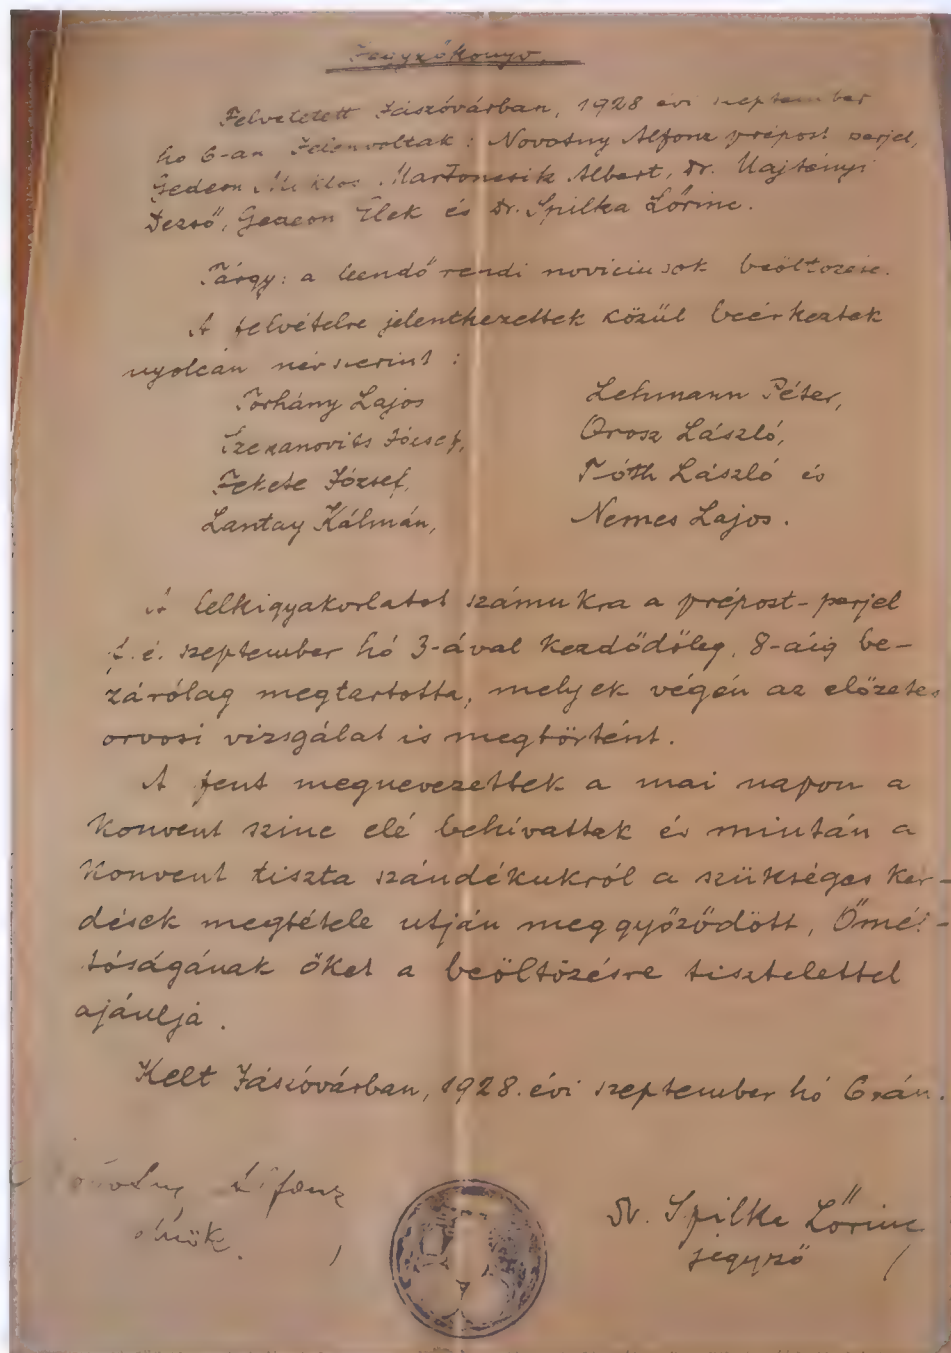 Jegyzőkönyv.
Felvétetett Jászóvárban, 1928 évi szeptember
hó 6-án Jelenvoltak: Novotny Alfonz prépost perjel,
Gedeon Miklós Martoncsik Albert, Dr. Hajtényi
Dezső, Gedeon Elek és Dr. Spilka Lőrinc.
Tárgy: a leendő rendi noviciusok beöltözése.
A felvételre jelentkezettek közül beérkeztek
nyolcan névszerint:
Torhány Lajos
Lehmann Péter,
Szexanovits József,
Orosz László,
Fekete József,
Tóth László és
Lantay Kálmán,
Nemes Lajos.
A lelkigyakorlatot számukra a prépost-perjel
f. é. szeptember hó 3-ával kezdődőleg, 8-áig be-
zárólag megtartotta, melyek végén az előzetes
orvosi vizsgálat is megtörtént.
A fent megnevezettek a mai napon a
Konvent szine elé behívattak és miután a
Konvent tiszta szándékukról a szükséges kér-
dések megtétele utján meggyőződött, Őmél-
tóságának őket a beöltözésre tisztelettel
ajánlja.
Kelt Jászóvárban, 1928. évi szeptember hó 6-án.
Novotny Alfonz
elnök.
Dr. Spilka Lőrinc
jegyző